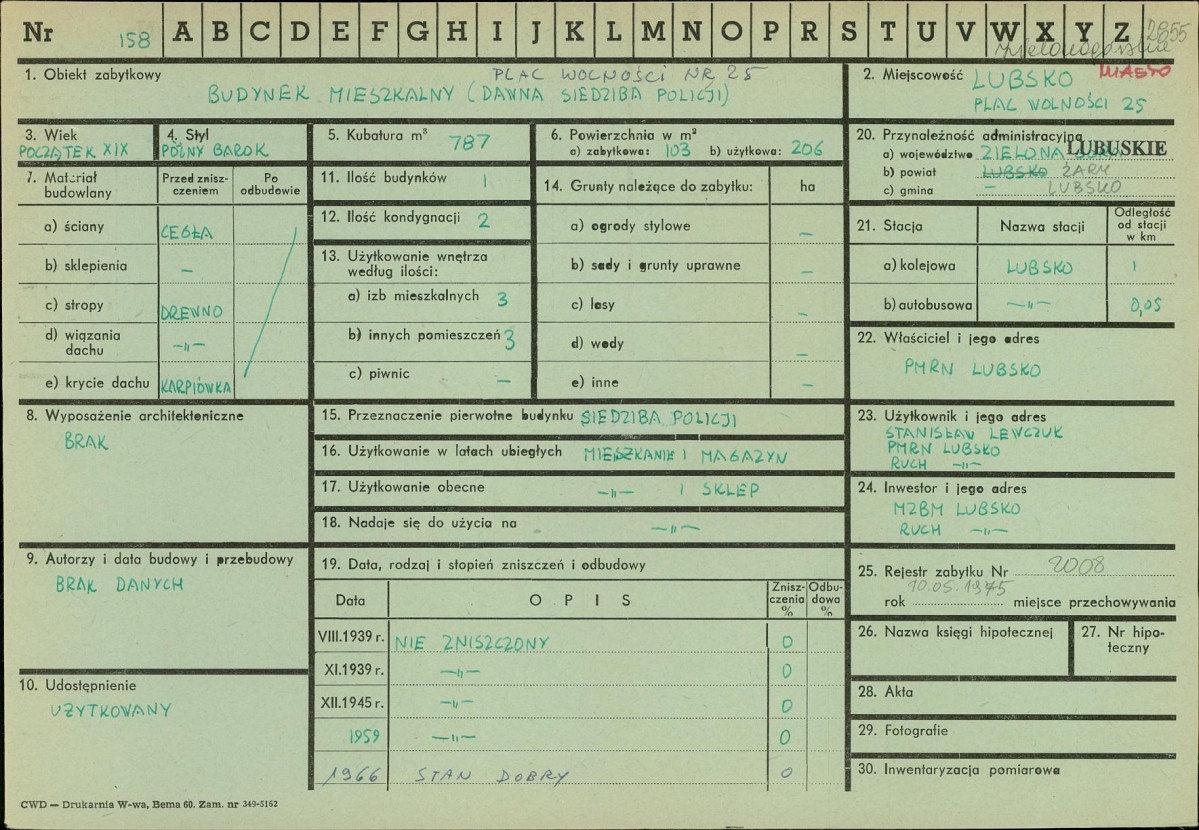 Nr 158 A B C D E F G H I J K L M N O P R S T U V W X Y Z 2855
1. Obiekt zabytkowy PLAC WOLNOŚCI NR 25
BUDYNEK MIESZKALNY (DAWNA SIEDZIBA POLICJI)
2. Miejscowość LUBSKO MIASTO
PLAC WOLNOŚCI 25
3. Wiek
POCZĄTEK XIX
4. Styl
PÓŹNY BAROK
5. Kubatura m³ 787
6. Powierzchnia w m²
a) zabytkowa: 103 b) użytkowa: 206
20. Przynależność administracyjna
a) województwo ZIELONA GÓRA LUBUSKIE
b) powiat LUBSKO ŻARY
c) gmina — LUBSKO
7. Materiał budowlany
Przed zniszczeniem
Po odbudowie
a) ściany CEGŁA
b) sklepienia —
c) stropy DREWNO
d) wiązania dachu —„—
e) krycie dachu KARPIÓWKA
11. Ilość budynków 1
12. Ilość kondygnacji 2
13. Użytkowanie wnętrza
według ilości:
a) izb mieszkalnych 3
b) innych pomieszczeń 3
c) piwnic —
14. Grunty należące do zabytku: ha
a) ogrody stylowe —
b) sady i grunty uprawne —
c) lasy —
d) wody —
e) inne —
21. Stacja
Nazwa stacji
Odległość od stacji w km
a) kolejowa LUBSKO 1
b) autobusowa —„— 0,05
22. Właściciel i jego adres
PMRN LUBSKO
8. Wyposażenie architektoniczne
BRAK
15. Przeznaczenie pierwotne budynku SIEDZIBA POLICJI
16. Użytkowanie w latach ubiegłych MIESZKANIE I MAGAZYN
17. Użytkowanie obecne —„— I SKLEP
18. Nadaje się do użycia na —„—
23. Użytkownik i jego adres
STANISŁAW LEWCZUK
PMRN LUBSKO
RUCH —„—
24. Inwestor i jego adres
MZBM LUBSKO
RUCH —„—
9. Autorzy i data budowy i przebudowy
BRAK DANYCH
10. Udostępnienie
UŻYTKOWANY
19. Data, rodzaj i stopień zniszczeń i odbudowy
Data
O P I S
Zniszczenia %
Odbudowa %
VIII.1939 r. NIE ZNISZCZONY 0
XI.1939 r. —„— 0
XII.1945 r. —„— 0
1959 —„— 0
1966 STAN DOBRY 0
25. Rejestr zabytku Nr 2008
10.05.1975
rok miejsce przechowywania
26. Nazwa księgi hipotecznej
27. Nr hipoteczny
28. Akta
29. Fotografie
30. Inwentaryzacja pomiarowa
CWD — Drukarnia W-wa, Bema 60. Zam. nr 349-5162